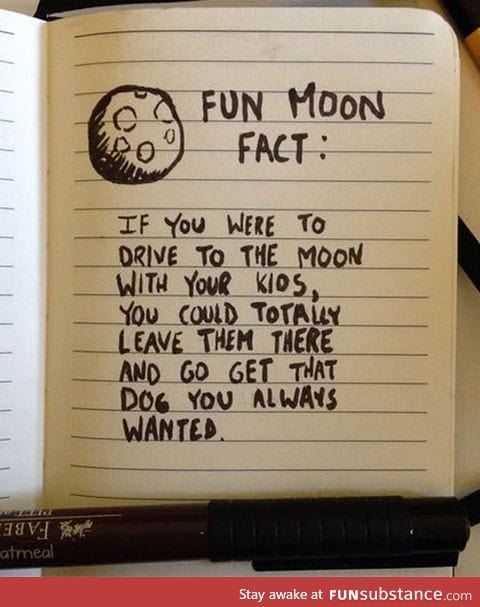 FUN MOON
FACT:
IF YOU WERE TO
DRIVE TO THE MOON
WITH YOUR KIDS,
YOU COULD TOTALLY
LEAVE THEM THERE
AND GO GET THAT
DOG YOU ALWAYS
WANTED.
FABE
atmeal
Stay awake at FUNsubstance.com